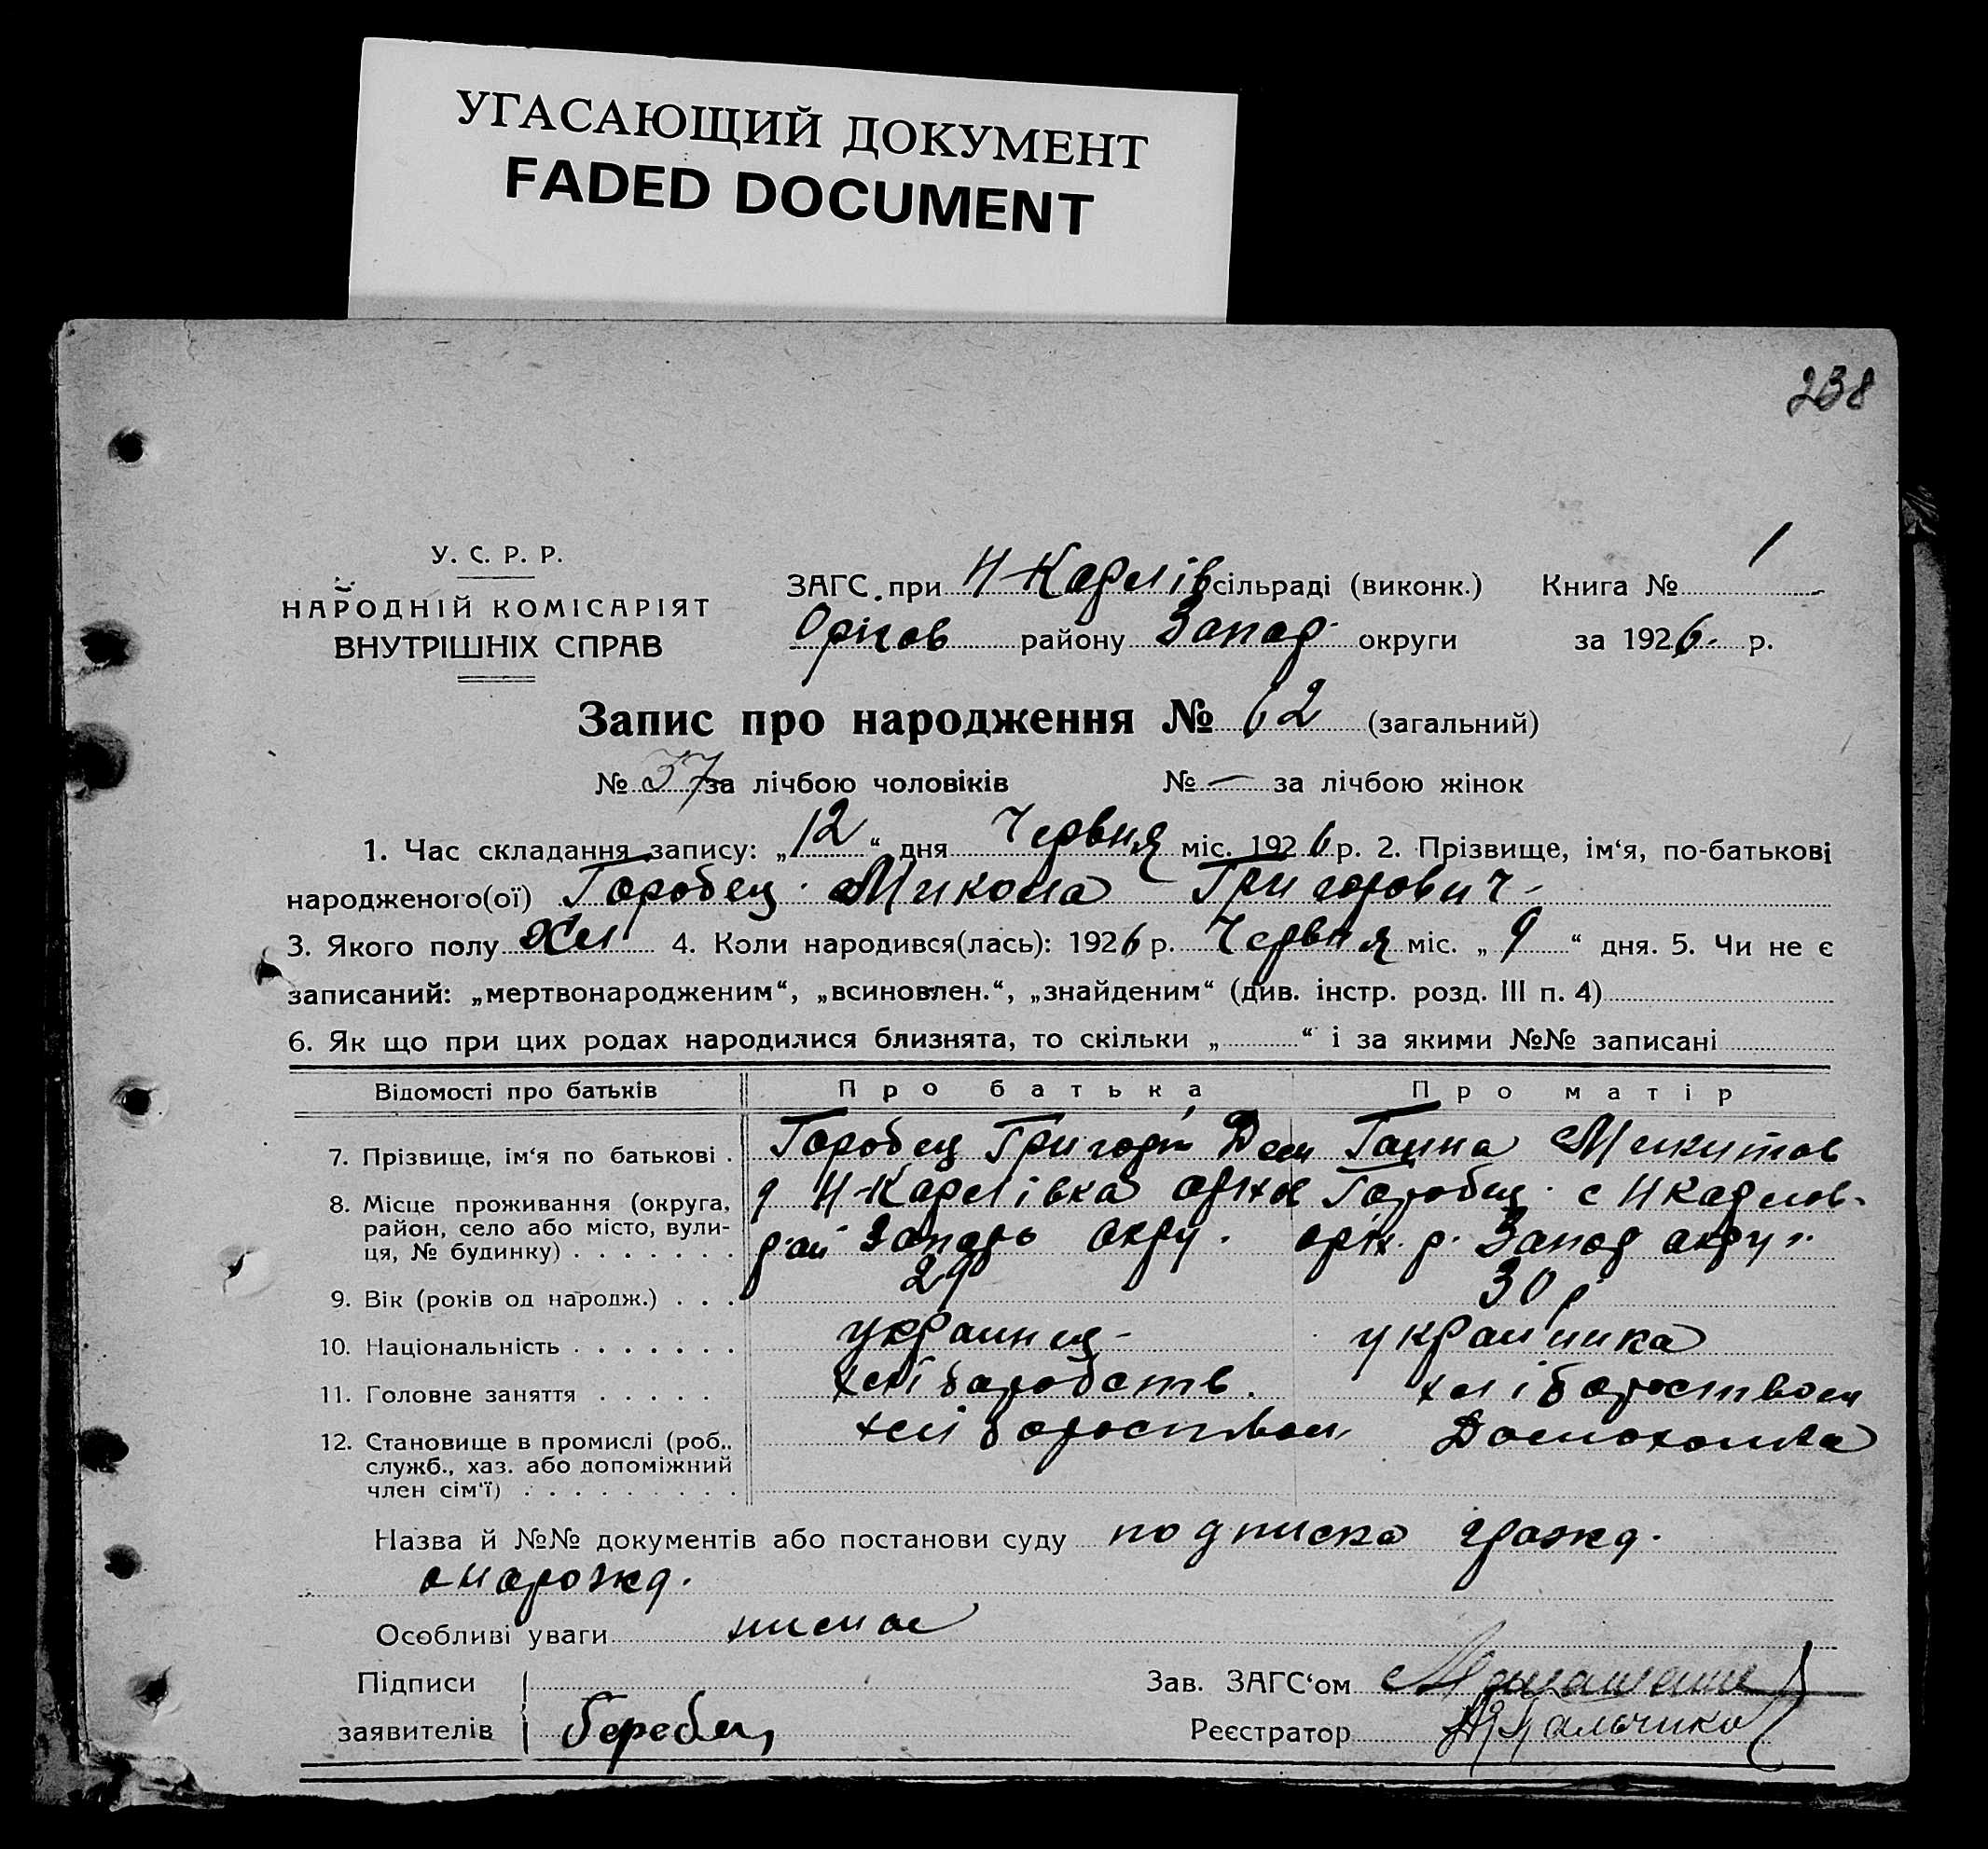 УГАСАЮЩИЙ ДОКУМЕНТ
FADED DOCUMENT
238
У. С. Р. Р.
НАРОДНІЙ КОМІСАРІЯТ
ВНУТРІШНІХ СПРАВ
ЗАГС при Н Карлів сільраді (виконк.) Книга № 1
Оріхов району Запор округи за 1926 р.
Запис про народження № 62 (загальний)
№ 37 за лічбою чоловіків № — за лічбою жінок
1. Час складання запису: „12“ дня Червня міс. 1926 р. 2. Прізвище, ім‘я, по-батькові
народженого(ої) Горобец Микола Григорович
3. Якого полу 4. Коли народився(лась): 1926 р. Червня міс. „9“ дня. 5. Чи не є
записаний: „мертвонародженим“, „всиновлен.“, „знайденим“ (див. інстр. розд. III п. 4)
6. Як що при цих родах народилися близнята, то скільки „ “ і за якими №№ записані
Відомості про батьків Про батька Про матір
7. Прізвище, ім‘я по батькові . Горобец Григорій Дем Ганна Микитов
8. Місце проживання (округа, Н-Карлівка оріхов Горобец с Н Карлов-
район, село або місто, вули- рай Запорь окру. оріх. р. Запор округ.
ця, № будинку) . . . . . . .
9. Вік (років од народж.) . . . 29 30 р
10. Національність . . . . . . . украинец украинка
11. Головне заняття . . . . . хліборобств. хліборoством
12. Становище в промислі (роб., хлібороством Домохозяйка
служб., хаз. або допоміжний
член сім‘ї) . . . . . . . . .
Назва й №№ документів або постанови суду подписка гражд.
о нарожд.
Особливі уваги немае
Підписи Зав. ЗАГС‘ом
заявителів Реєстратор